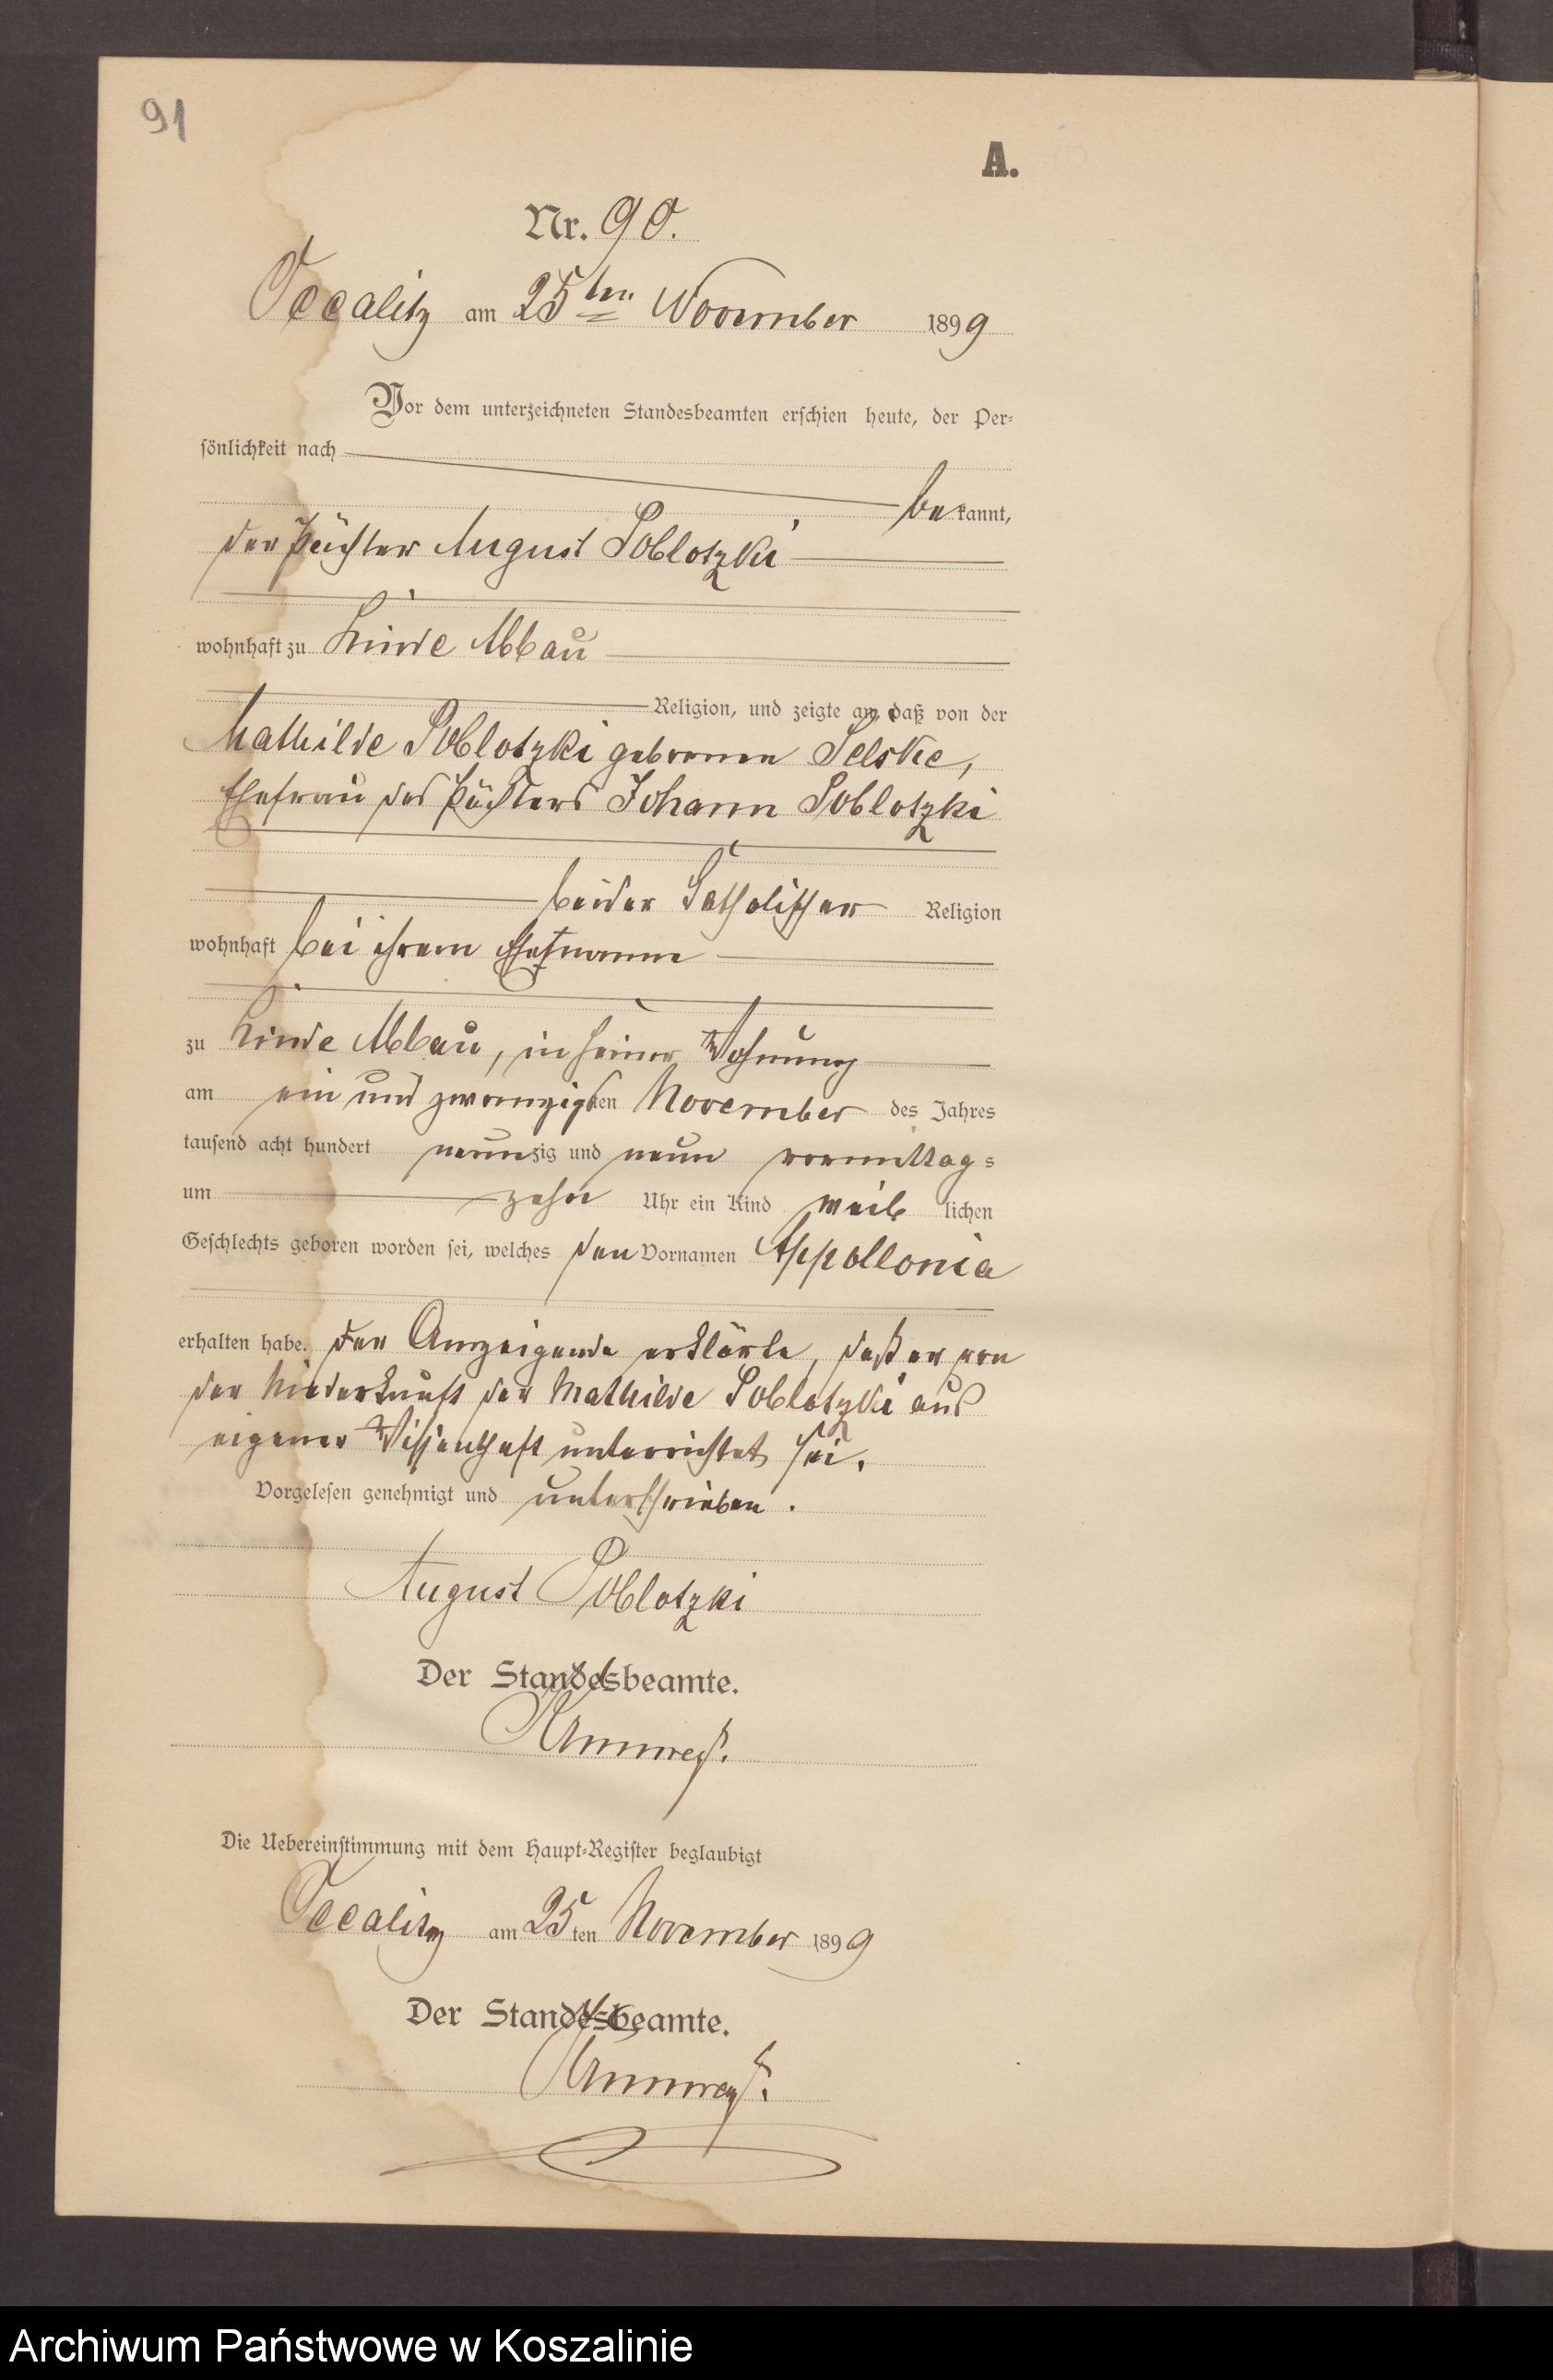 91
A.
Nr. 90.
Occalitz am 25ten November 1899
Vor dem unterzeichneten Standesbeamten erschien heute, der Per-
sönlichkeit nach
bekannt,
der Pächter August Poblotzki
wohnhaft zu Linde Abbau
Religion, und zeigte an, daß von der
Mathilde Poblotzki geborenen Selske,
Ehefrau des Pächters Johann Poblotzki
beider Katholischer Religion
wohnhaft bei ihrem Ehemanne
zu Linde Abbau, in seiner Wohnung
am ein und zwanzigsten November des Jahres
tausend acht hundert neunzig und neun vormittags
um zehn Uhr ein Kind weiblichen
Geschlechts geboren worden sei, welches den Vornamen Appollonia
erhalten habe. Der Anzeigende erklärte, daß er von
der Niederkunft der Mathilde Poblotzki aus
eigener Wissenschaft unterrichtet sei.
Vorgelesen genehmigt und unterschrieben.
August Poblotzki
Der Standesbeamte.
Die Uebereinstimmung mit dem Haupt-Register beglaubigt
Occalitz am 25ten November 1899
Der Standesbeamte.
Archiwum Państwowe w Koszalinie